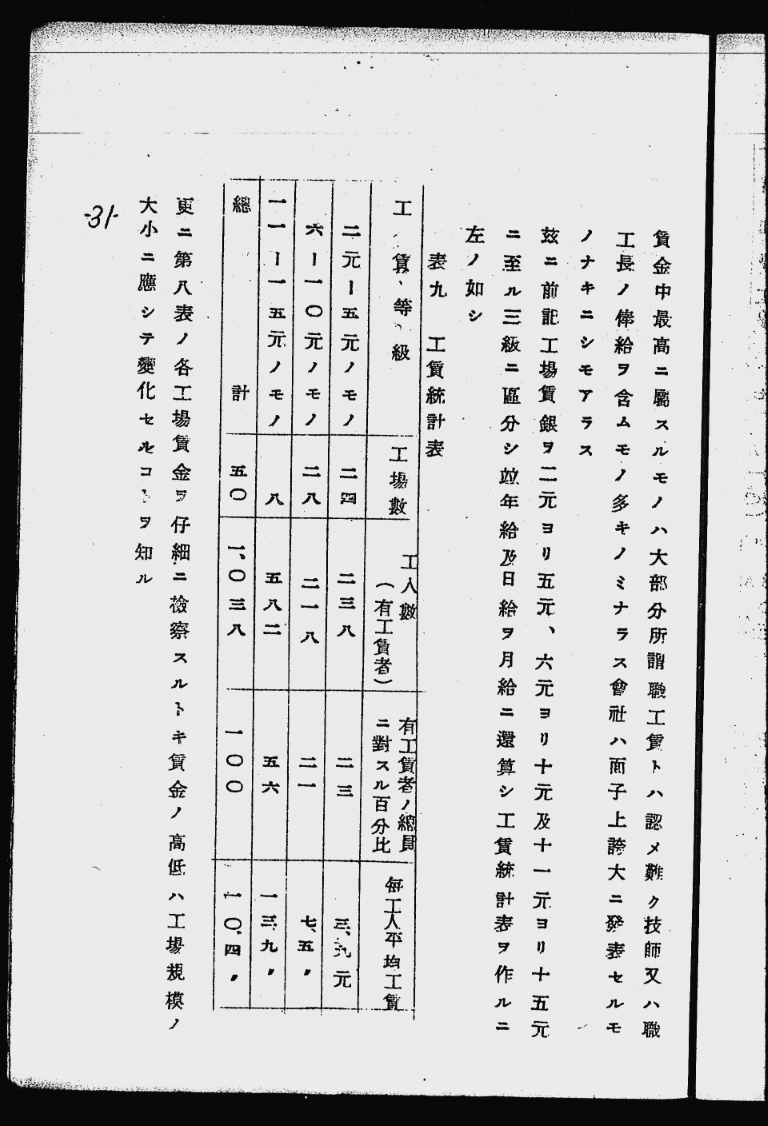 賃金中最高ニ屬スルモノハ大部分所謂職工賃トハ認メ難ク技師又ハ職
工長ノ俸給ヲ含ムモノ多キノミナラス會社ハ面子上誇大ニ發表セルモ
ノナキニシモアラス
茲ニ前記工場賃銀ヲ二元ヨリ五元、六元ヨリ十元及十一元ヨリ十五元
ニ至ル三級ニ區分シ竝年給及日給ヲ月給ニ還算シ工賃統計表ヲ作ルニ
左ノ如シ
表九 工賃統計表
工賃等級 工場數 工人數(有工賃者) 有工賃者ノ總員ニ對スル百分比 每工人平均工賃
二元ー五元ノモノ 二四 二三八 二三 三、九元
六ー一〇元ノモノ 二八 二一八 二一 七、五〃
一一ー一五元ノモノ 八 五八二 五六 一三、九〃
總計 五〇 一、〇三八 一〇〇 一〇、四〃
更ニ第八表ノ各工場賃金ヲ仔細ニ檢察スルトキ賃金ノ高低ハ工場規模ノ
大小ニ應シテ變化セルコトヲ知ル
-31-